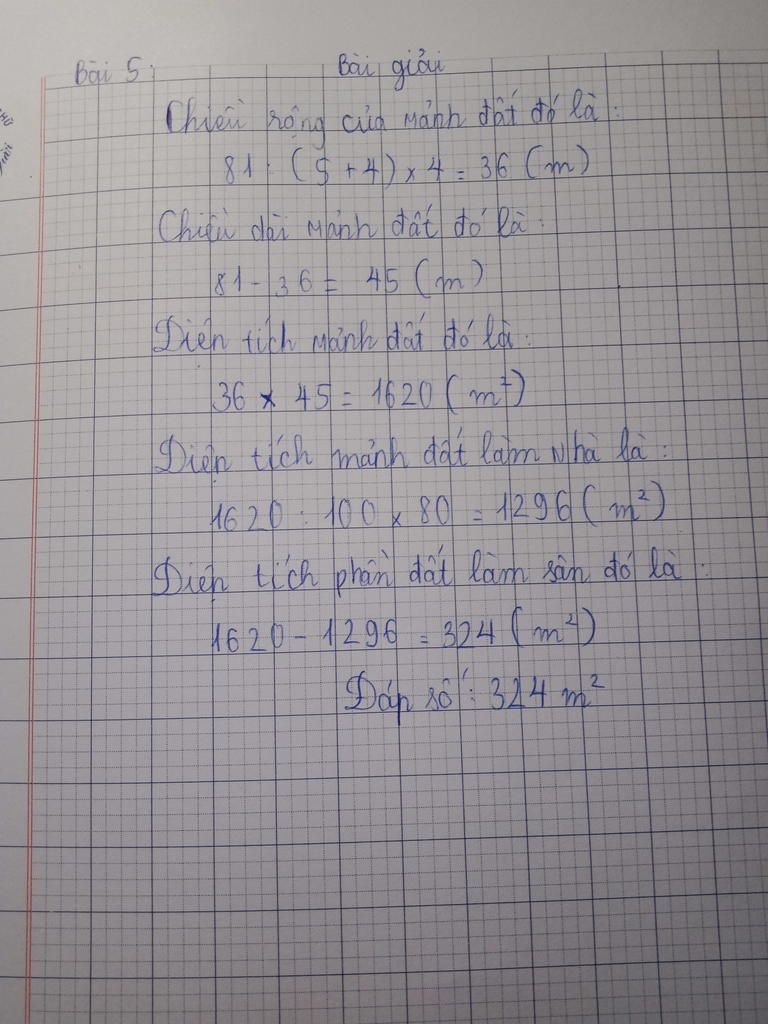 Bài 5: Bài giải
Chiều rộng của mảnh đất đó là:
81 : (5 + 4) × 4 = 36 (m)
Chiều dài mảnh đất đó là:
81 - 36 = 45 (m)
Diện tích mảnh đất đó là:
36 × 45 = 1620 (m²)
Diện tích mảnh đất làm nhà là:
1620 : 100 × 80 = 1296 (m²)
Diện tích phần đất làm sân đó là:
1620 - 1296 = 324 (m²)
Đáp số: 324 m²